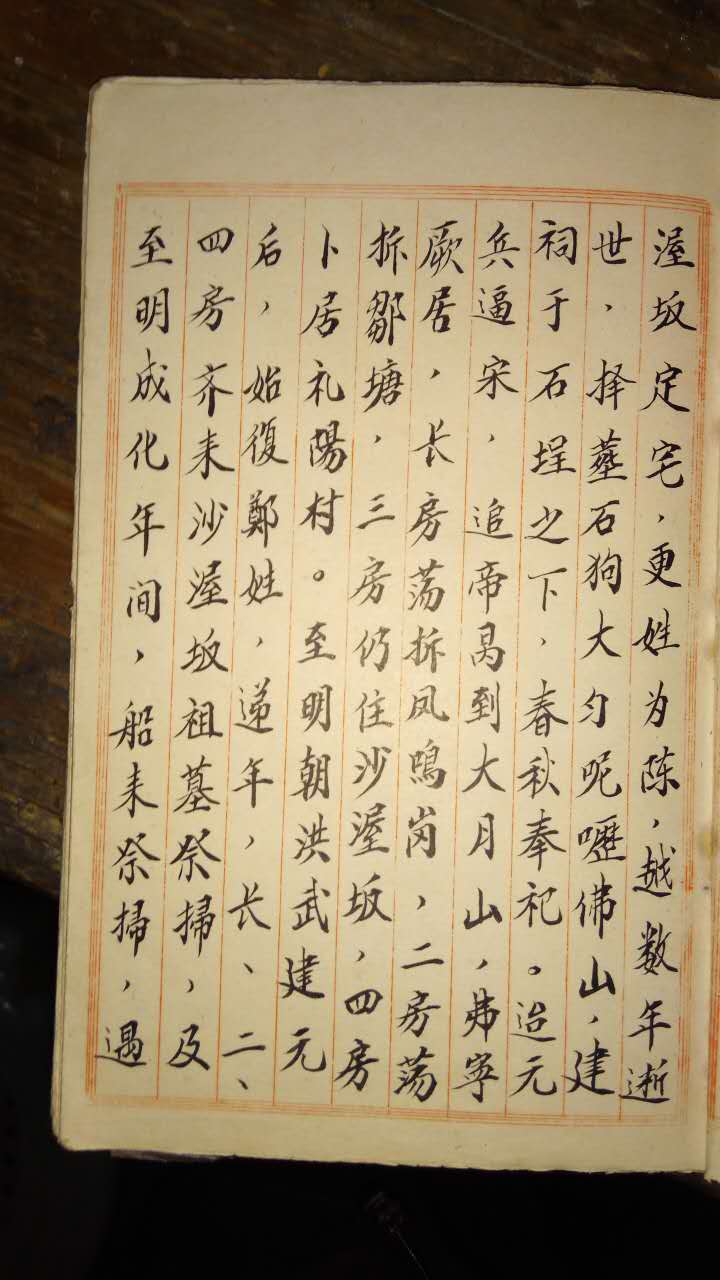 渥坂定宅，更姓为陈，越数年逝
世，择莹石狗大匀呢嚦佛山，建
祠于石埕之下，春秋奉祀。迨元
兵逼宋，追帝昺到大月山，弗寧
厥居，长房荡拆凤鳴岗，二房荡
拆鄒塘，三房仍住沙渥坂，四房
卜居礼陽村。至明朝洪武建元
后，始復鄭姓，递年，长、二、
四房齐来沙渥坂祖墓祭掃，及
至明成化年间，船来祭掃，遇